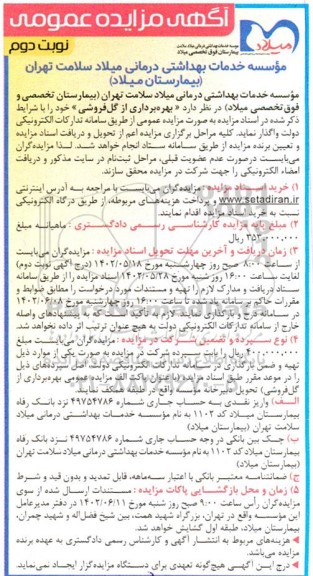 آگهی مزایده عمومی
نوبت دوم
میلاد
مؤسسه خدمات بهداشتی درمانی میلاد سلامت تهران
(بیمارستان میلاد)
مؤسسه خدمات بهداشتی درمانی میلاد سلامت تهران (بیمارستان تخصصی و
فوق تخصصی میلاد) در نظر دارد « بهره‌برداری از گل‌فروشی » خود را با شرایط
ذکر شده در اسناد مزایده به صورت مزایده عمومی از طریق سامانه تدارکات الکترونیکی
دولت واگذار نماید. کلیه مراحل برگزاری مزایده اعم از تحویل و دریافت اسناد مزایده
و تعیین برنده مزایده از طریق سامانه ستاد انجام خواهد شد. لذا مزایده‌گران
می‌بایست درصورت عدم عضویت قبلی، مراحل ثبت‌نام در سایت مذکور و دریافت
امضاء الکترونیکی را جهت شرکت در مزایده محقق سازند.
۱) خرید اسناد مزایده: مزایده‌گران می‌بایست با مراجعه به آدرس اینترنتی
www.setadiran.ir و پرداخت هزینه‌های مربوطه، از طریق درگاه الکترونیکی
نسبت به خرید اسناد مزایده اقدام نمایند.
۲) مبلغ پایه مزایده کارشناسی رسمی دادگستری: ماهیانه مبلغ
ریال
۳) زمان دریافت و آخرین مهلت تحویل اسناد مزایده: مزایده‌گران می‌بایست
از ساعت ۸:۰۰ صبح روز چهارشنبه مورخ ۱۴۰۲/۰۵/۱۸ (درج آگهی نوبت دوم)
لغایت ساعت ۱۶:۰۰ روز شنبه مورخ ۱۴۰۲/۰۵/۲۸ اسناد مزایده را از طریق سامانه
ستاد دریافت و مدارک لازم را تهیه و مستندات مورد درخواست را مطابق ضوابط و
مقررات حاکم بر سامانه یاد شده تا ساعت ۱۶:۰۰ روز چهارشنبه مورخ
در سامانه درج و بارگذاری نمایند. لازم به تأکید است که به پیشنهادهای واصله
خارج از سامانه تدارکات الکترونیکی دولت به هیچ عنوان ترتیب اثر داده نخواهد شد.
۴) نوع سپرده و تضمین شرکت در مزایده: مزایده‌گران می‌بایست مبلغ
ریال را بابت سپرده شرکت در مزایده به صورت یکی از موارد ذیل
تهیه و ضمن بارگذاری در سامانه تدارکات الکترونیکی دولت، اصل سپرده‌های ذیل
را در موعد مقرر طبق اسناد مزایده با عنوان پاکت الف مزایده عمومی بهره‌برداری از
گل‌فروشی تحویل دبیرخانه مؤسسه واقع در طبقه همکف نمایند.
الف) واریز نقدی به حساب جاری شماره ۴۹۷۵۴۷۸۶ نزد بانک رفاه
بیمارستان میلاد کد ۱۱۰۲ به نام مؤسسه خدمات بهداشتی درمانی میلاد
سلامت تهران (بیمارستان میلاد)
ب) چک بین بانکی در وجه حساب جاری شماره ۴۹۷۵۴۷۸۶ نزد بانک رفاه
بیمارستان میلاد کد ۱۱۰۲ به نام مؤسسه خدمات بهداشتی درمانی میلاد سلامت تهران
(بیمارستان میلاد)
ج) ضمانتنامه معتبر بانکی با اعتبار سه‌ماهه، قابل تمدید و بدون قید و شرط
۵) زمان و محل بازگشایی پاکات مزایده: مستندات ارسال شده از سوی
مزایده‌گران رأس ساعت ۹:۰۰ صبح روز شنبه مورخ ۱۴۰۲/۰۶/۱۱ در دفتر مدیرعامل
این مؤسسه واقع در تهران، بزرگراه شهید همت، بین شیخ فضل‌اله و شهید چمران،
بیمارستان میلاد، طبقه اول گشایش خواهد شد.
هزینه‌های مربوط به انتشار آگهی و کارشناس رسمی دادگستری به عهده برنده
مزایده می‌باشد.
درج این آگهی هیچ‌گونه تعهدی برای دستگاه مزایده‌گزار ایجاد نمی‌نماید.